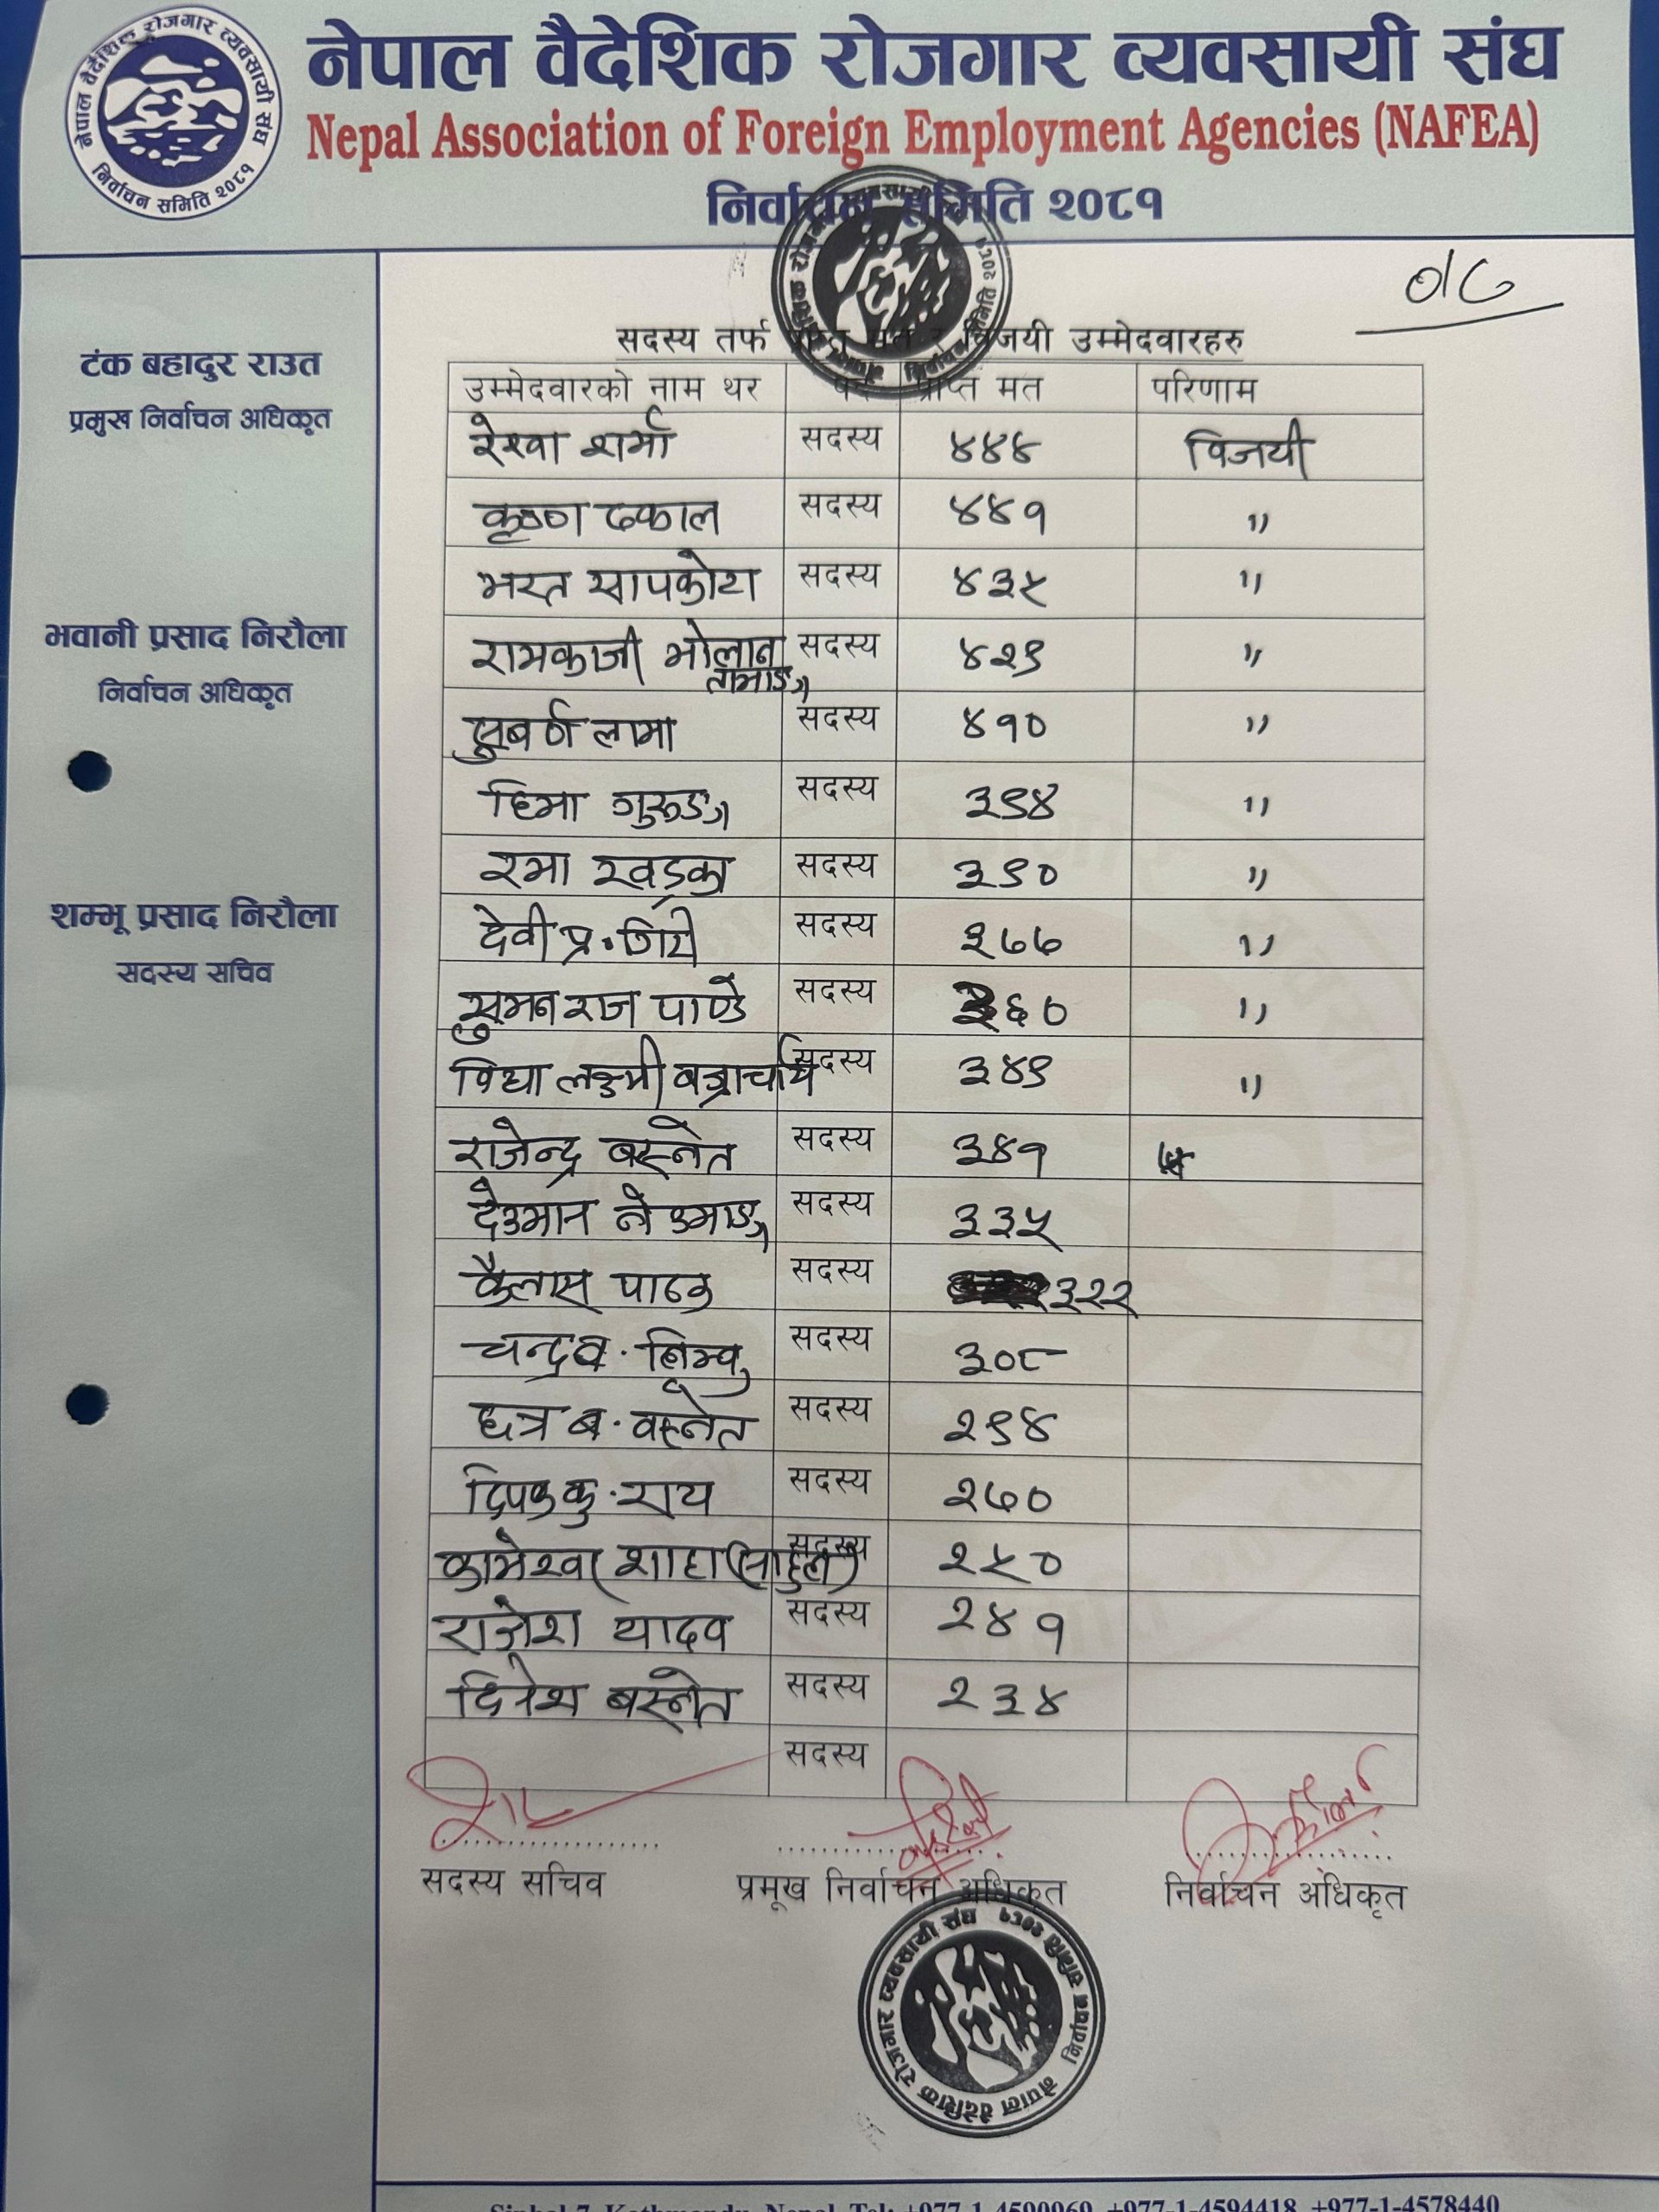 नेपाल वैदेशिक रोजगार व्यवसायी संघ
निर्वाचन समिति २०८१
नेपाल वैदेशिक रोजगार व्यवसायी संघ
Nepal Association of Foreign Employment Agencies (NAFEA)
निर्वाचन समिति २०८१
टंक बहादुर राउत
प्रमुख निर्वाचन अधिकृत
भवानी प्रसाद निरौला
निर्वाचन अधिकृत
शम्भू प्रसाद निरौला
सदस्य सचिव
सदस्य तर्फ प्राप्त मत र विजयी उम्मेदवारहरु
उम्मेदवारको नाम थर पद प्राप्त मत परिणाम
रेखा शर्मा सदस्य ४४४ विजयी
कृष्ण ढकाल सदस्य ४४१ "
भरत सापकोटा सदस्य ४३५ "
रामकाजी भोलान तामाङ सदस्य ४२९ "
सुबर्ण लामा सदस्य ४१० "
हिमा गुरुङ सदस्य ३९४ "
रमा खड्का सदस्य ३९० "
देवी प्र. गिरी सदस्य ३७७ "
सुमन राज पाण्डे सदस्य ३६० "
विद्या लक्ष्मी बज्राचार्य सदस्य ३४९ "
राजेन्द्र बस्नेत सदस्य ३४१
देउमान सदस्य ३३५
कैलास पाठक सदस्य ३२२
चन्द्र ब. लिम्बु सदस्य ३०८
छत्र ब. वस्नेत सदस्य २९४
दिपक कु. राय सदस्य २७०
कामेश्वर शाहा सदस्य २५०
राजेश यादव सदस्य २४१
दिनेश बस्नेत सदस्य २३४
सदस्य
सदस्य सचिव प्रमूख निर्वाचन अधिकृत निर्वाचन अधिकृत
नेपाल वैदेशिक रोजगार व्यवसायी संघ
निर्वाचन समिति २०८१